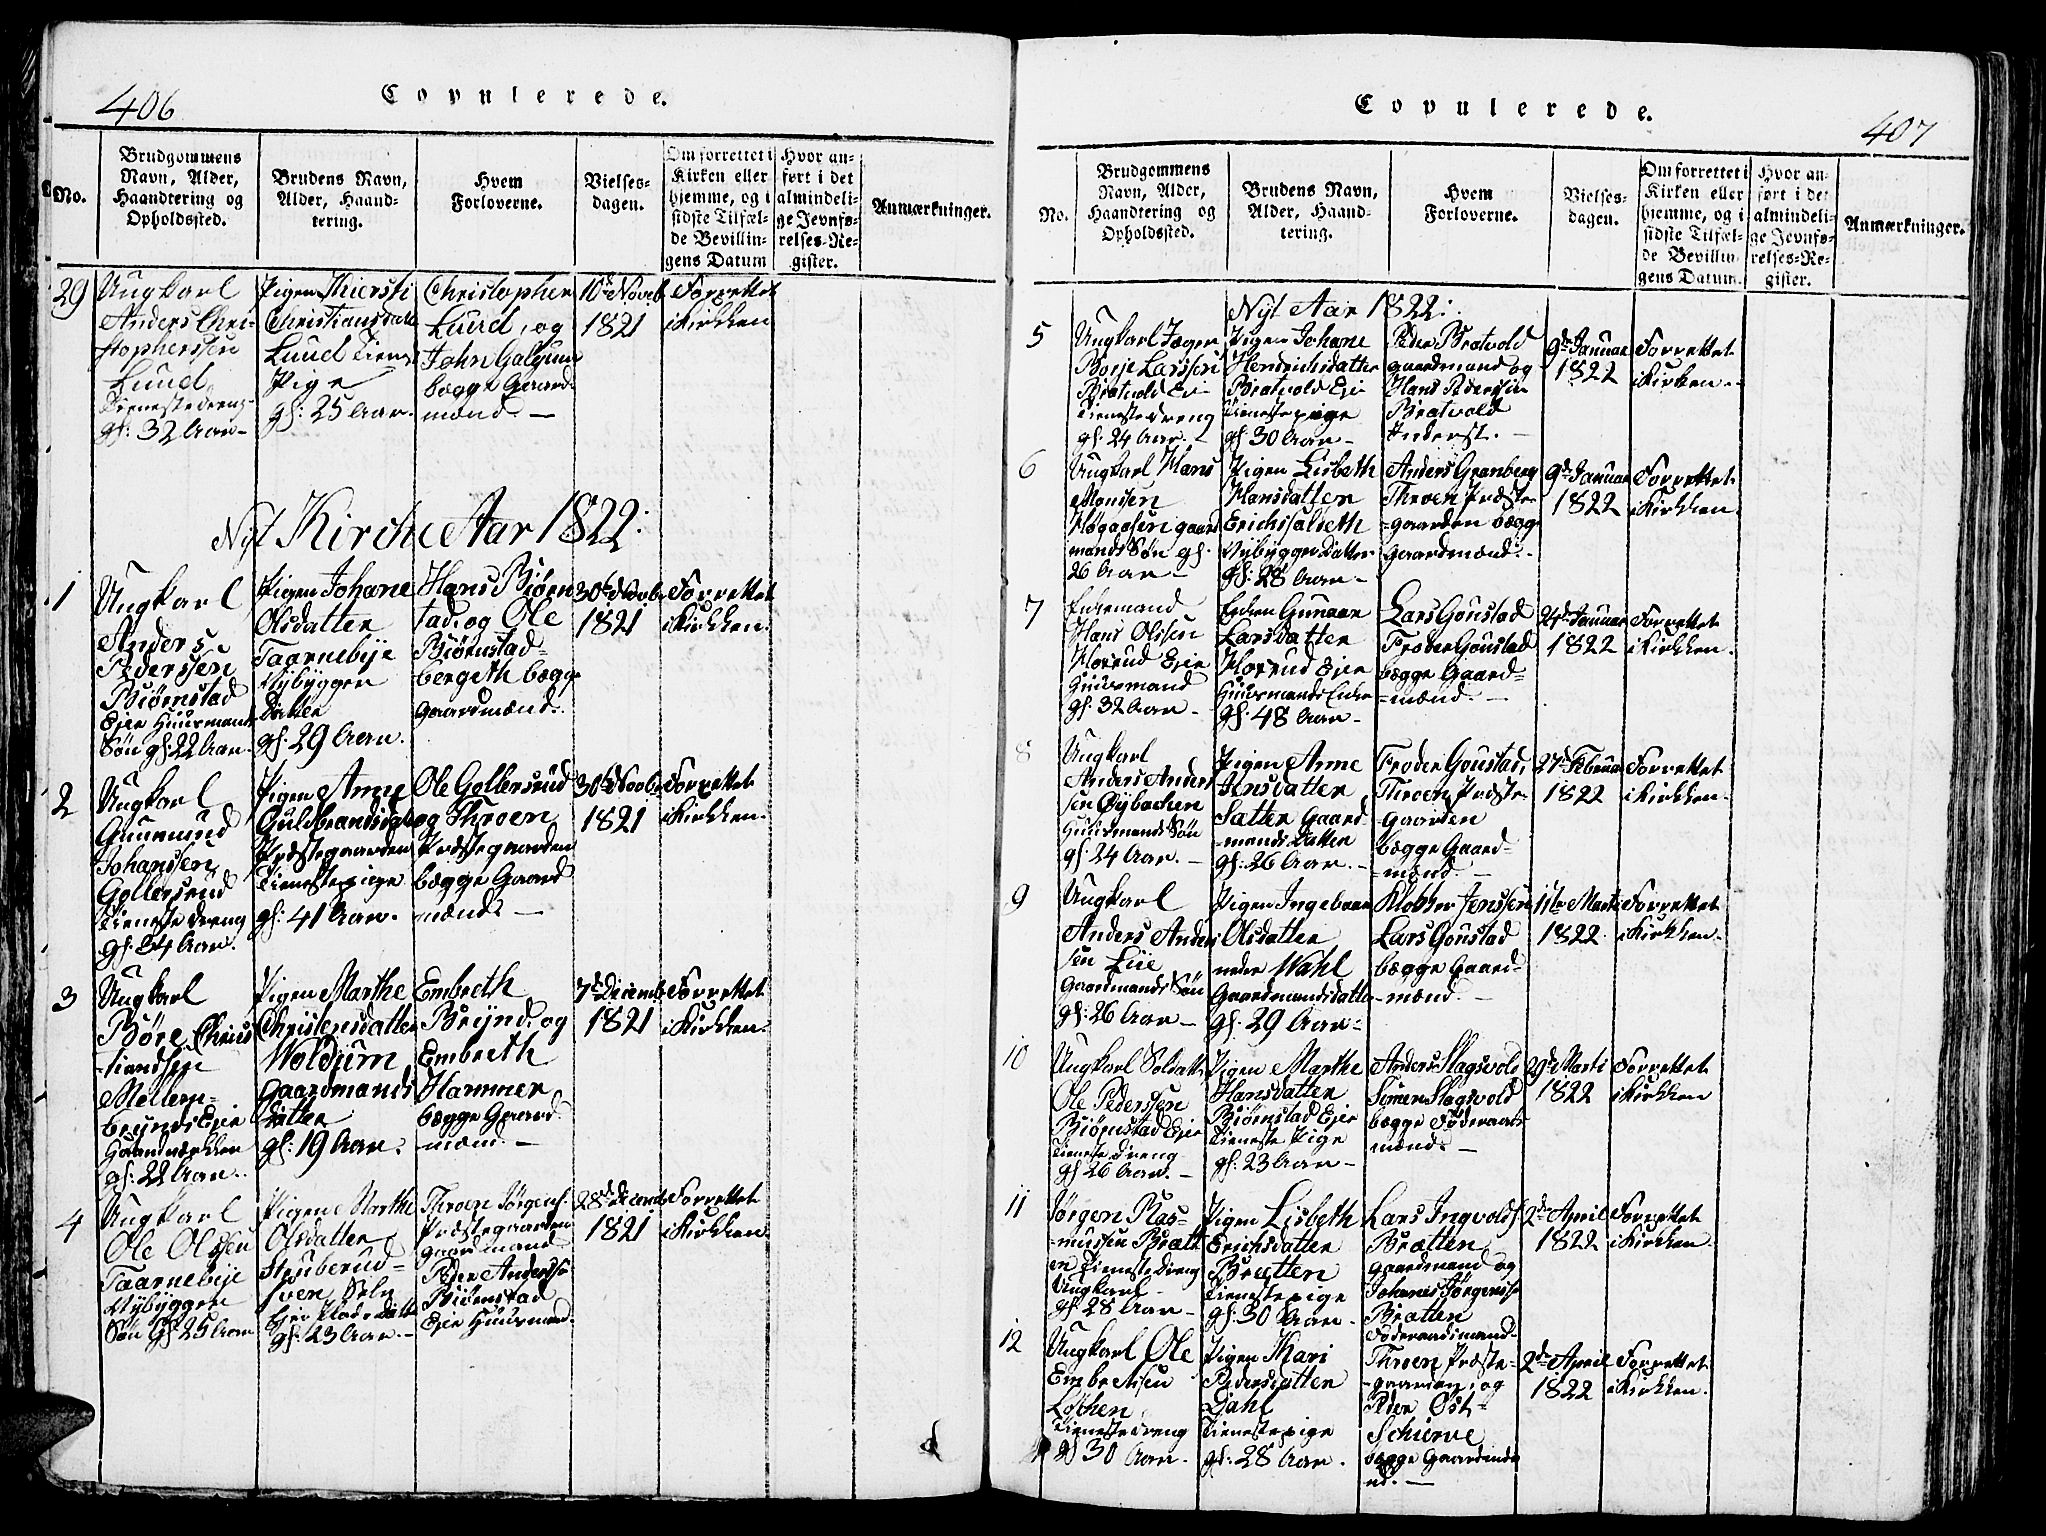 406
Copulerede.
No.
Brudgommens
Navn, Alder,
Haandtering og
Opholdssted.
Brudens Navn,
Alder, Haand-
tering.
Hvem
Forloverne.
Vielses-
dagen.
Om forrettet i
Kirken eller
hjemme, og i
sidste Tilfæl-
de Bevillin-
gens Datum
Hvor an-
ført i det
almindeli-
ge Jevnfø-
relses-Re-
gister.
Anmærkninger.
29
Ungkarl
Anders Chri-
stopherssen
Lund
Tienestedreng
gl: 32 Aar
Pigen Kiersti
Christiansdatt
Lund Tienes
Pige
gl: 25 Aar.
Christopher
Lund, og
John Galgum
begge Gaard
mænd.
10de Novb
1821
Forrettet
i Kirkken
Nyt Kirche Aar 1822:
1
Ungkarl
Anders
Pederssen
Biørnstad
Eje Huusmands
Søn gl: 22 Aar.
Pigen Johane
Olsdatter
Taarnebye
Nybygger
Datter
gl: 29 Aar.
Hans Biørn
tad. og Ole
Biørnstad
bergeth begge
Gaardmænd.
30te Novbr
1821
Forrettet
i Kirkken.
2
Ungkarl
Gunmund
Johanssen
Gollersrud
Tieneste dreng
gl: 34 Aar.
Pigen Anne
Guldbrandsdatt
Præstegaarden
Tienestepige
gl: 41 Aar.
Ole Gollersrud
og Throen
Præstegaarden
begge Gaard
mænd.
30te Novbr
1821
Forrettet
i Kirkken.
3
Ungkarl
Børe Chris
tiandsen
Mellem-
Brynds Eje
Haandværkker
gl: 22 Aar.
Pigen Marthe
Christensdatter
Woldum
Gaardmands
Datter
gl: 19 Aar.
Embreth
Brynd. og
Embreth
Hammer
begge Gaard
mænd.
7de Decemb
1821
Forrettet
i Kirkken.
4
Ungkarl
Ole Olssen
Taarnebye
Nybygger
Søn gl: 25 Aar
Pigen Marthe
Olsdatter
Struberud-
gl: 23 Aar.
Throen Jørgens.
Præstegaarden
gaardmand
Peder Anderss
Biørnstad
Eje Huusmand.
28de Decemb
1821
Forrettet
i Kirkken.
Copulerede.
407
No.
Brudgommens
Navn, Alder,
Haandtering og
Opholdssted.
Brudens Navn,
Alder, Haand-
tering.
Hvem
Forloverne.
Vielses-
dagen.
Om forrettet i
Kirken eller
hjemme, og i
sidste Tilfæl-
de Bevillin-
gens Datum.
Hvor an-
ført i det
almindeli-
ge Jevnfø-
relses-Re-
gister.
Anmærkninger.
Nyt Aar 1822:
5
Ungkarl Jæger
Børje Larssen
Bratvold Eie
Tienestedreng
gl: 24 Aar.
Pigen Johane
Hendrichsdatter
Bratvold Eje
Tienestepige
gl: 30 Aar
Peder Bratvold
gaardmand og
Hans Pederssen
Bratvold
Inderst.
9de Januar
1822
Forrettet
i Kirken.
6
Ungkarl Hans
Monsen
gaard
mands Søn gl.
26 Aar
Pigen Lisbeth
Hansdatter
Erichssalseth
Nybygger Datter
gl: 28 Aar
Anders Granberg
Throen Præste-
gaarden begge
gaardmænd.
9de Januar
1822
Forrettet
i Kirkken.
7
Enkemand
Hans Olssen
Horrud Eje
Huusmand
gl: 32 Aar
Enken Gunaar
Larsdatter
Horrud Eje
Huusmands Enke
gl: 48 Aar
Lars Goustad
Froder Goustad
begge Gaard-
mænd.
24de Januar
1822
Forrettet
i Kirkken.
8
Ungkarl
Anders Anders
sen Øybachen
Huusmands Søn
gl: 24 Aar.
Pigen Anne
Jensdatter
Sætter Gaard
mands Datter
gl: 26 Aar.
Froder Goustad,
Throen Præste
gaarden
begge Gaard-
mænd.
27de Februar
1822
Forrettet
i Kirkken.
9
Ungkarl
Anders Anders
sen Lie
Gaardmands Søn
gl: 26 Aar
Pigen Ingebaar
Olsdatter
nedre Wahl
Gaardmandsdatter
gl: 29 Aar
Klokker Jenssen
Lars Goustad
begge Gaard-
mænd.
11te Marti
1822
Forrettet
i Kirkken.
10
Ungkarl Soldatt
Ole Pederssen
Biørnstad Eje
Tieneste dreng
gl 26 Aar.
Pigen Marthe
Hansdatter
Biørnstad Eje
Tieneste Pige
gl: 23 Aar
Anders Slagsvold
Simen Slagsvold
begge Føderaads
mænd.
29de Marti
1822
Forrettet
i Kirkken
11
Jørgen Ras-
mussen Bratt
en Tienestedreng
Ungkarl
gl: 28 Aar
Pigen Lisbeth
Erichsdatter
Bratten
Tienestepige
gl: 30 Aar.
Lars Ingvolds
Brætten
Gaardmand og
Johannes Jørgenss
Brætten
Føderaadsmand
2de April
1822
Forrettet
i Kirkken.
12
Ungkarl Ole
Embretsen
Løchen
Tienestedreng
gl 30 Aar.
Pigen Kari
Pedersdatter
Dahl
Tienestepige
gl: 28 Aar.
Throen Præste-
gaarden, og
Peder Øst-
Schierve
begge Gaardmæ
nd.
2de April
1822
Forrettet
i Kirkken.